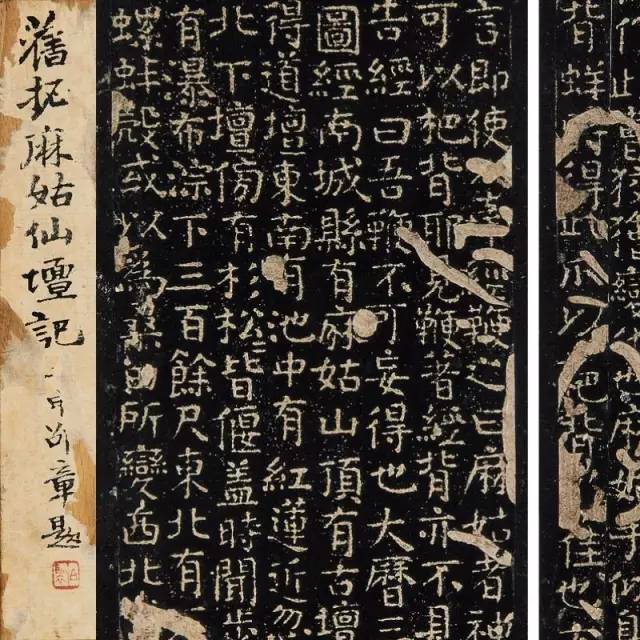 作此曹狡獪變化也麻姑手似鳥
背蛘時得此爪以杷背乃佳也
言即使人牽經鞭之曰麻姑者神
可以杷背耶見鞭著經背亦不見
告經曰吾鞭不可妄得也大曆三
圖經南城縣有麻姑山頂有古壇
得道壇東南有池中有紅蓮近忽
北下壇傍有杉松皆偃蓋時聞步
有暴布淙下三百餘尺東北有
螺蚌殼或以為桑田所變西北
舊拓麻姑仙壇記
章題